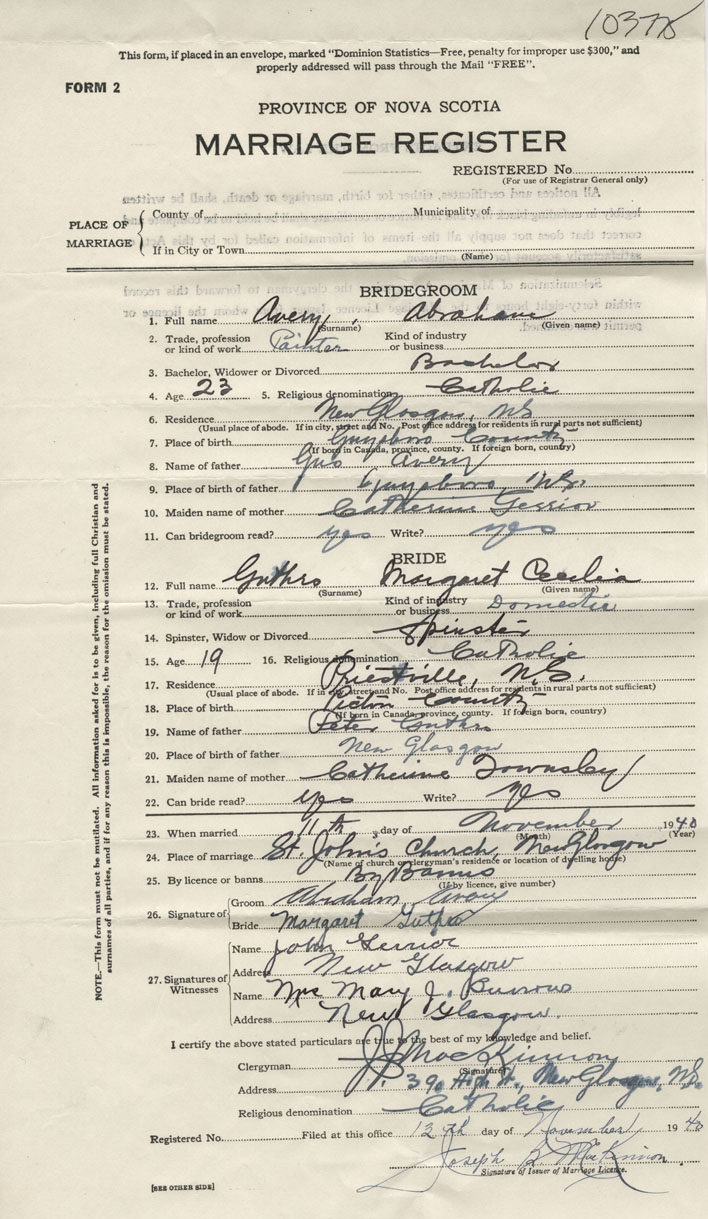 10378
This form, if placed in an envelope, marked "Dominion Statistics—Free, penalty for improper use $300," and
properly addressed will pass through the Mail "FREE".
FORM 2
PROVINCE OF NOVA SCOTIA
MARRIAGE REGISTER
REGISTERED No.
(For use of Registrar General only)
PLACE OF MARRIAGE
County of Municipality of
If in City or Town
(Name)
BRIDEGROOM
1. Full name Avery, Abraham
(Surname) (Given name)
2. Trade, profession or kind of work Painter Kind of industry or business
3. Bachelor, Widower or Divorced Bachelor
4. Age 23 5. Religious denomination Catholic
6. Residence New Glasgow, NS
(Usual place of abode. If in city, street and No. Post office address for residents in rural parts not sufficient)
7. Place of birth Guysboro County
(If born in Canada, province, county. If foreign born, country)
8. Name of father Gus Avery
9. Place of birth of father Guysboro, N.S.
10. Maiden name of mother Catherine
11. Can bridegroom read? yes Write? yes
BRIDE
12. Full name Guthro Margaret Cecelia
(Surname) (Given name)
13. Trade, profession or kind of work Kind of industry or business Domestic
14. Spinster, Widow or Divorced Spinster
15. Age 19 16. Religious denomination Catholic
17. Residence Priestville, N.S.
(Usual place of abode. If in city, street and No. Post office address for residents in rural parts not sufficient)
18. Place of birth Pictou County
(If born in Canada, province, county. If foreign born, country)
19. Name of father Peter Guthro
20. Place of birth of father New Glasgow
21. Maiden name of mother Catherine Townsley
22. Can bride read? yes Write? yes
23. When married 11th day of November 1940
(Month) (Year)
24. Place of marriage St. John's Church, New Glasgow
(Name of church or clergyman's residence or location of dwelling house)
25. By licence or banns By Banns
(If by licence, give number)
26. Signature of
Groom Abraham Avery
Bride Margaret Guthro
27. Signatures of Witnesses
Name John Gerrior
Address New Glasgow
Name Mrs Mary J. Burrows
Address New Glasgow.
I certify the above stated particulars are true to the best of my knowledge and belief.
Clergyman MacKinnon
(Signature)
Address High St., New Glasgow, N.S.
Religious denomination Catholic
Registered No. Filed at this office 12th day of November 1940
Joseph B. MacKinnon
Signature of Issuer of Marriage Licence.
[SEE OTHER SIDE]
NOTE.—This form must not be mutilated. All information asked for is to be given, including full Christian and
surnames of all parties, and if for any reason this is impossible, the reason for the omission must be stated.